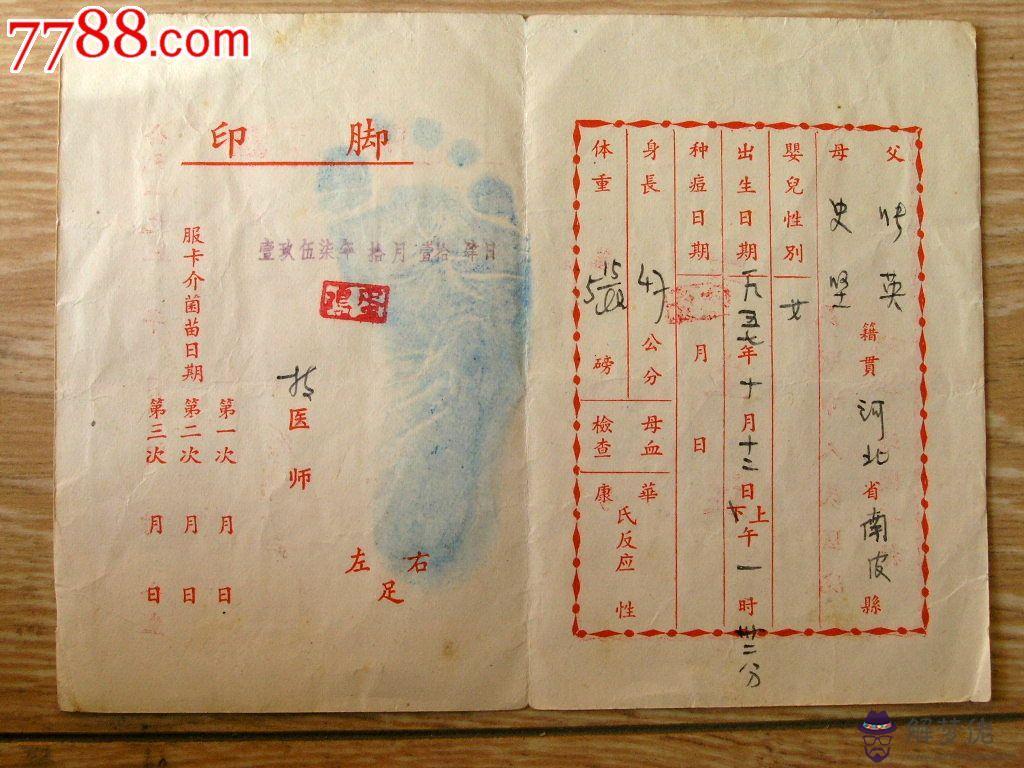 7788.com
父 母
史 坚 英
籍貫 河北省南皮縣
嬰兒性別 女
出生日期 一九五七年十月十二日上下午一时卅二分
种痘日期 月 日
身長 47 公分 母血華氏反应
体重 5 15/ 磅 檢查康 性
脚印
壹玖伍柒年 拾月 壹拾 日
医师
服卡介菌苗日期
第一次 月 日
第二次 月 日
第三次 月 日
左 右
足
解梦佬